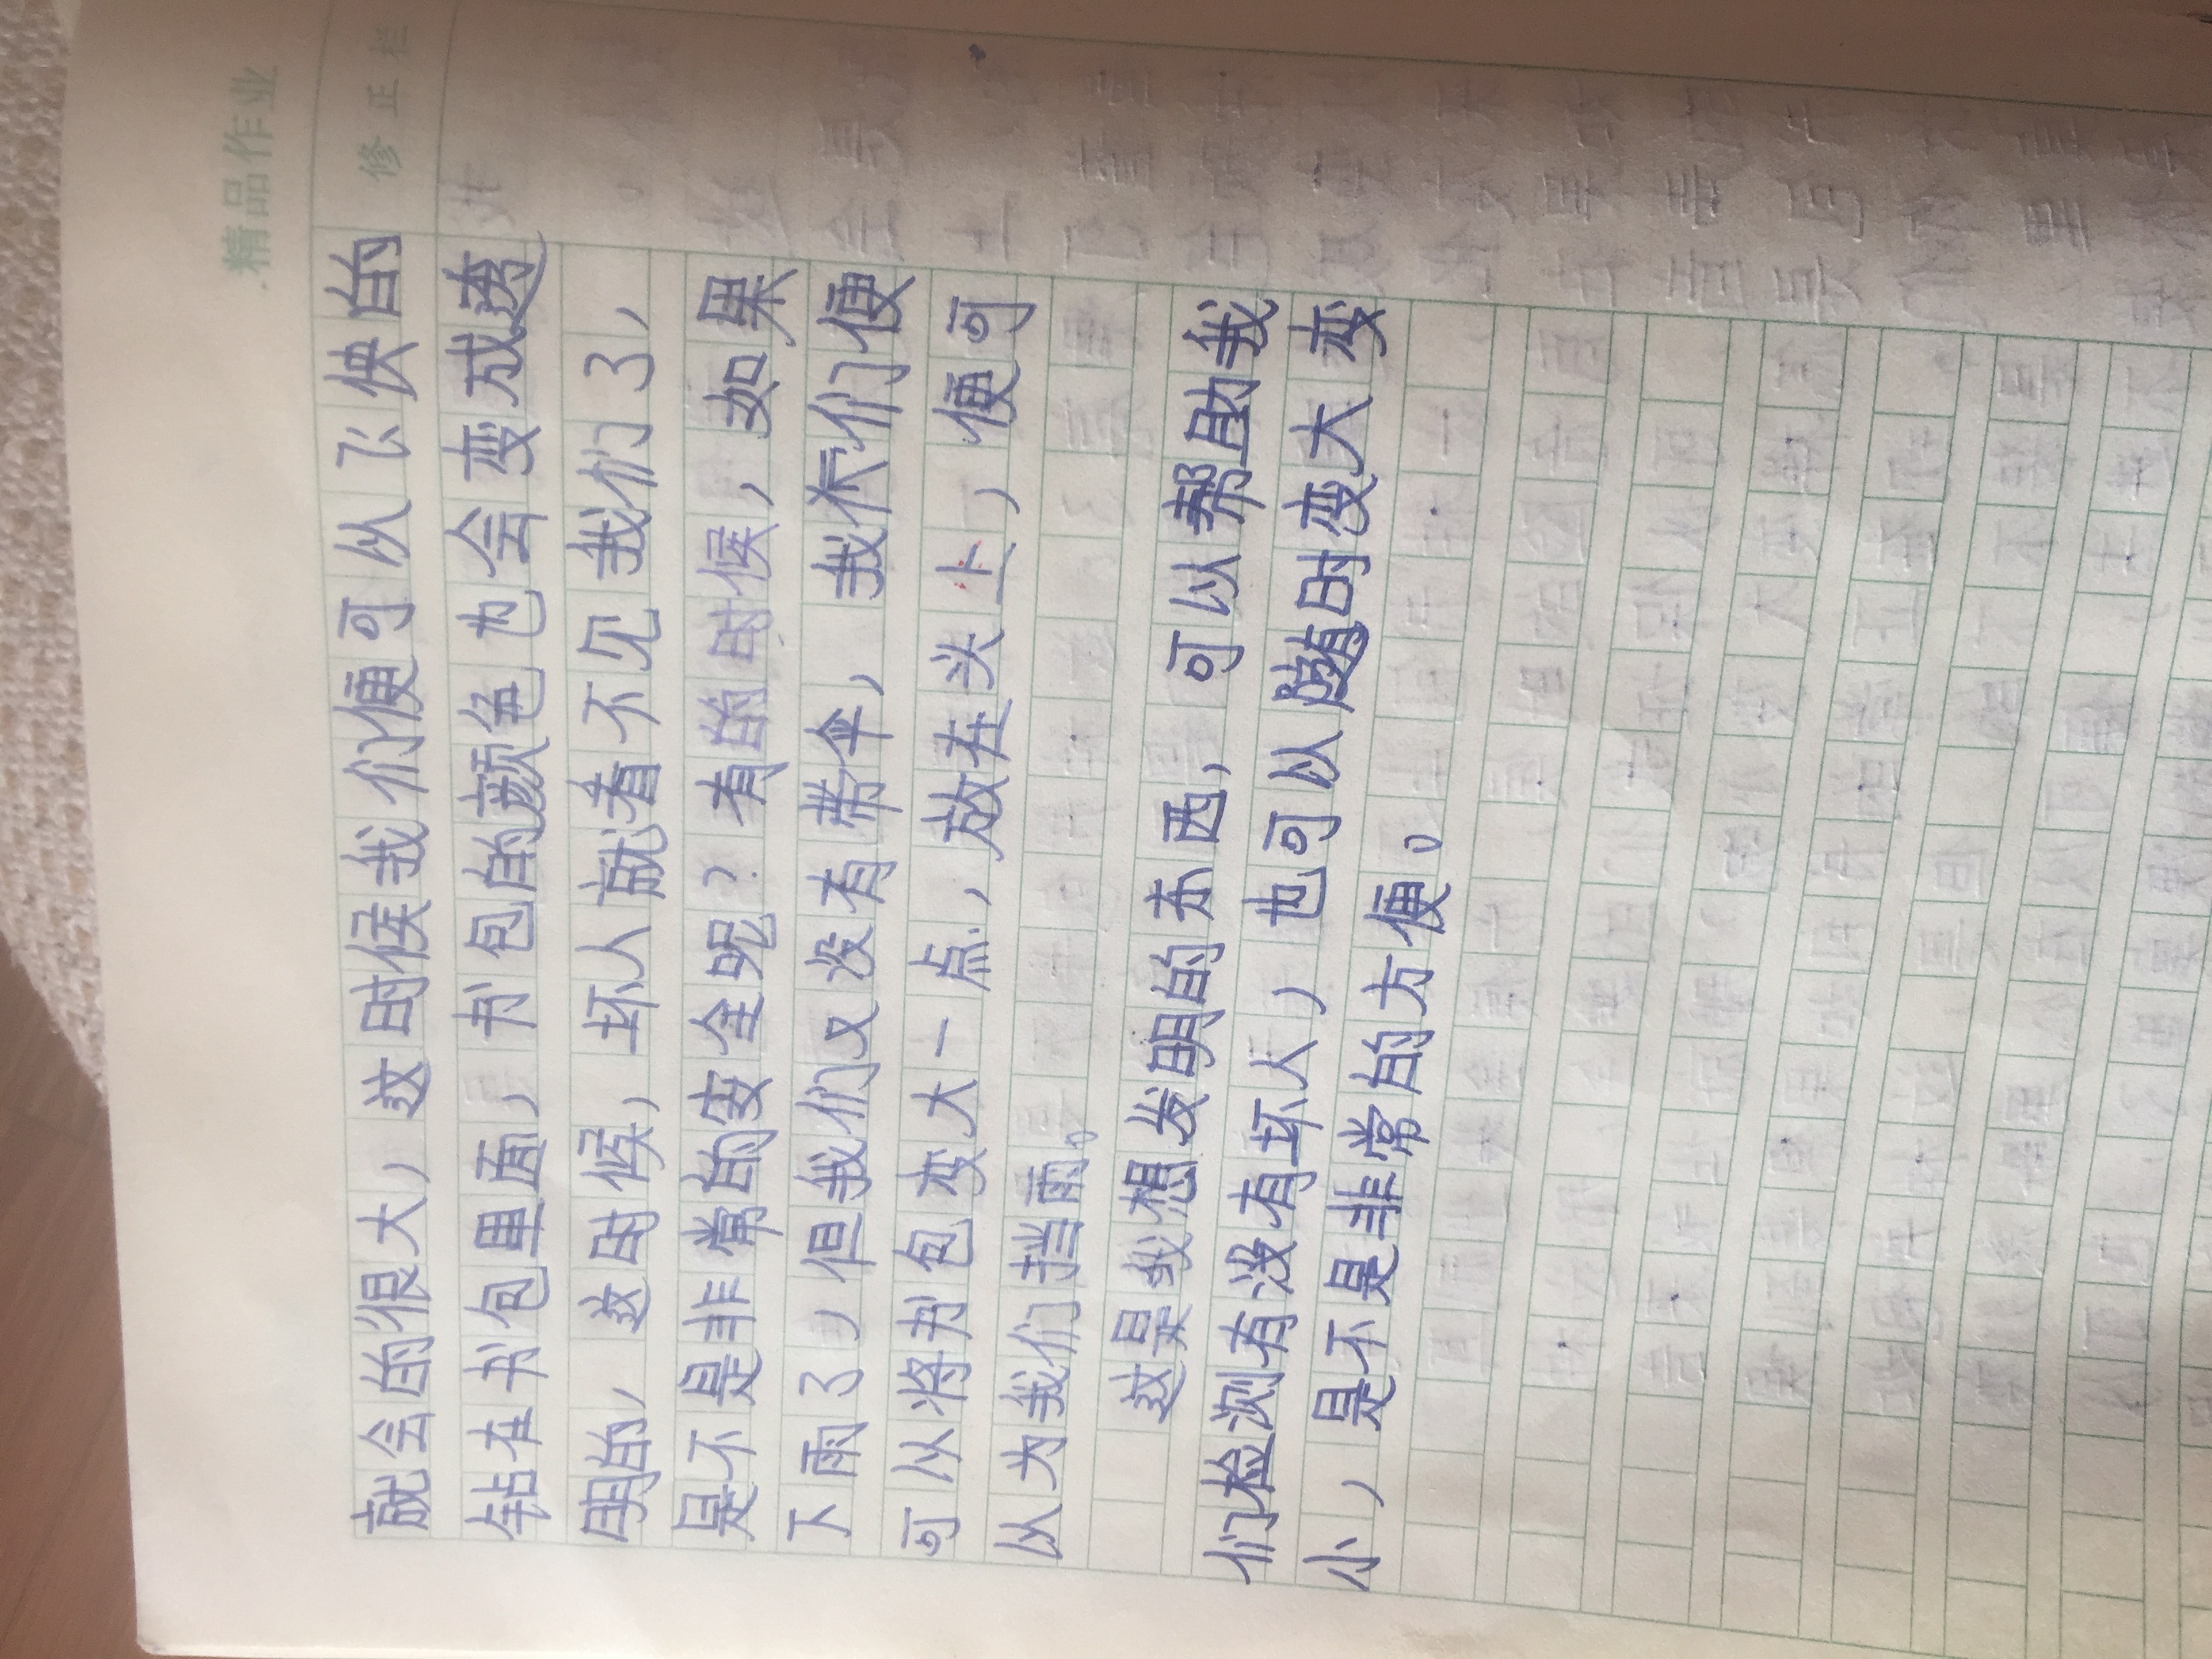 精品作业
修正栏
就会的很大，这时候我们便可以飞快的
钻在书包里面，书包的颜色也会变成透
明的，这时候，坏人就看不见我们了，
是不是非常的安全呢？有的时候，如果
下雨了，但我们又没有带伞，我们便
可以将书包变大一点，放在头上，便可
以为我们挡雨。
这是我想发明的东西，可以帮助我
们检测有没有坏人，也可以随时变大变
小，是不是非常的方便。